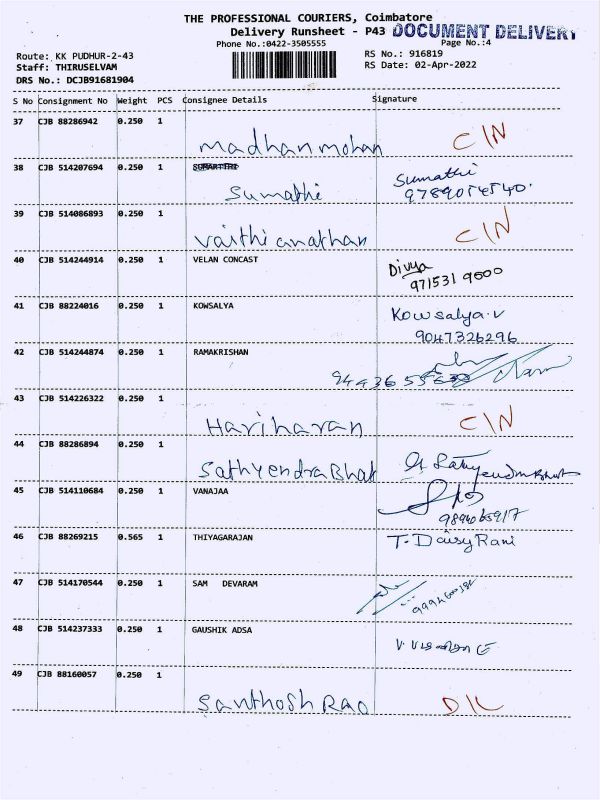 THE PROFESSIONAL COURIERS, Coimbatore
Delivery Runsheet - P43 DOCUMENT DELIVERY
Phone No.:0422-3505555 Page No.:4
Route: KK PUDHUR-2-43 RS No.: 916819
Staff: THIRUSELVAM RS Date: 02-Apr-2022
DRS No.: DCJB91681904
S No Consignment No Weight PCS Consignee Details Signature
37 CJB 88286942 0.250 1
Madhan mohan C/N
38 CJB 514207694 0.250 1 Sumathi
Sumathi
39 CJB 514086893 0.250 1
Vaithianathan C/N
40 CJB 514244914 0.250 1 VELAN CONCAST
Divya
971531 9000
41 CJB 88224016 0.250 1 KOWSALYA Kowsalya.V
9047326296
42 CJB 514244874 0.250 1 RAMAKRISHAN
43 CJB 514226322 0.250 1
Hariharan C/N
44 CJB 88286894 0.250 1
Sathyendra Bhat
45 CJB 514110684 0.250 1 VANAJAA
46 CJB 88269215 0.565 1 THIYAGARAJAN T. Daisy Rani
47 CJB 514170544 0.250 1 SAM DEVARAM
48 CJB 514237333 0.250 1 GAUSHIK ADSA
49 CJB 88160057 0.250 1
Santhosh Rao D/L